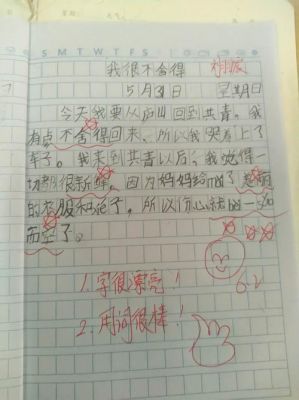 SMTWTFS
我很不舍得
5月31日 星期日
今天我要从庐山回到共青。我
有点不舍得回来、所以我哭着上了
车子。我来到共青以后、我觉得一
切都很新鲜。因为妈妈给了
的衣服和 子，所以伤心 一
而空了。
1.字很漂亮！
2.用词很棒！
6.2